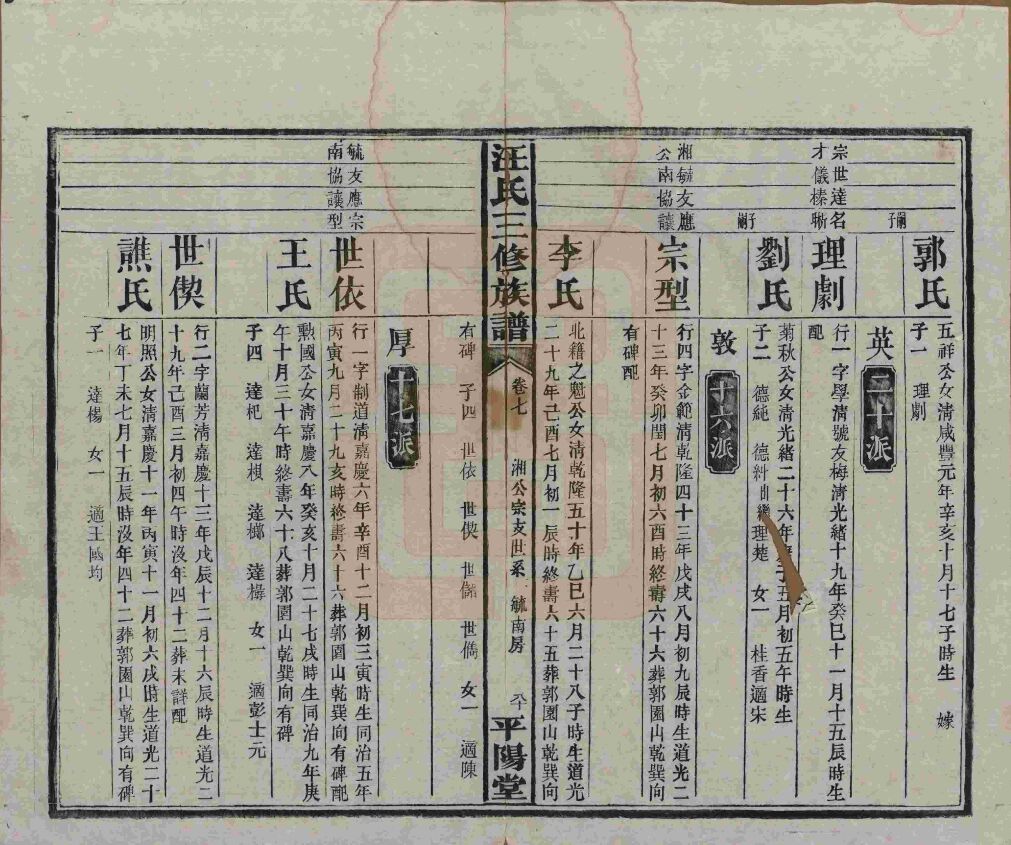 郭氏
五祥公女清咸豐元年辛亥十月十七子時生　嫁
子一　理劇
英二十派
宗世達名嗣子
才儀榛
理劇
行一字學清號友梅清光緒十九年癸巳十一月十五辰時生
配
劉氏
菊秋公女清光緒二十六年庚子五月初五午時生
子二　德純　德科出繼理楚　女一　桂香適宋
敦十六派
湘毓友應
公南協讓
嗣子
宗型
行四字金範清乾隆四十三年戊戌八月初九辰時生道光二
十三年癸卯閏七月初六酉時終壽六十六葬郭園山乾巽向
有碑配
李氏
北籍之魁公女清乾隆五十年乙巳六月二十八子時生道光
二十九年己酉七月初一辰時終壽六十五葬郭園山乾巽向
汪氏三修族譜
卷七　湘公宗支世系　毓南房
平陽堂
有碑　子四　世依　世偰　世儲　世儁　女一　適陳
厚十七派
毓友應宗
南協讓型
世依
行一字制道清嘉慶六年辛酉十二月初三寅時生同治五年
丙寅九月二十九亥時終壽六十六葬郭園山乾巽向有碑配
王氏
勲國公女清嘉慶八年癸亥十月二十七戌時生同治九年庚
午十月三十午時終壽六十八葬郭園山乾巽向有碑
子四　達杷　達梘　達榔　達椽　女一　適彭士元
世偰
行二字蘭芳清嘉慶十三年戊辰十二月十六辰時生道光二
十九年己酉三月初四午時沒年四十二葬未詳配
譙氏
明照公女清嘉慶十一年丙寅十一月初六戌時生道光二十
七年丁未七月十五辰時沒年四十二葬郭園山乾巽向有碑
子一　達楊　女一　適王國均